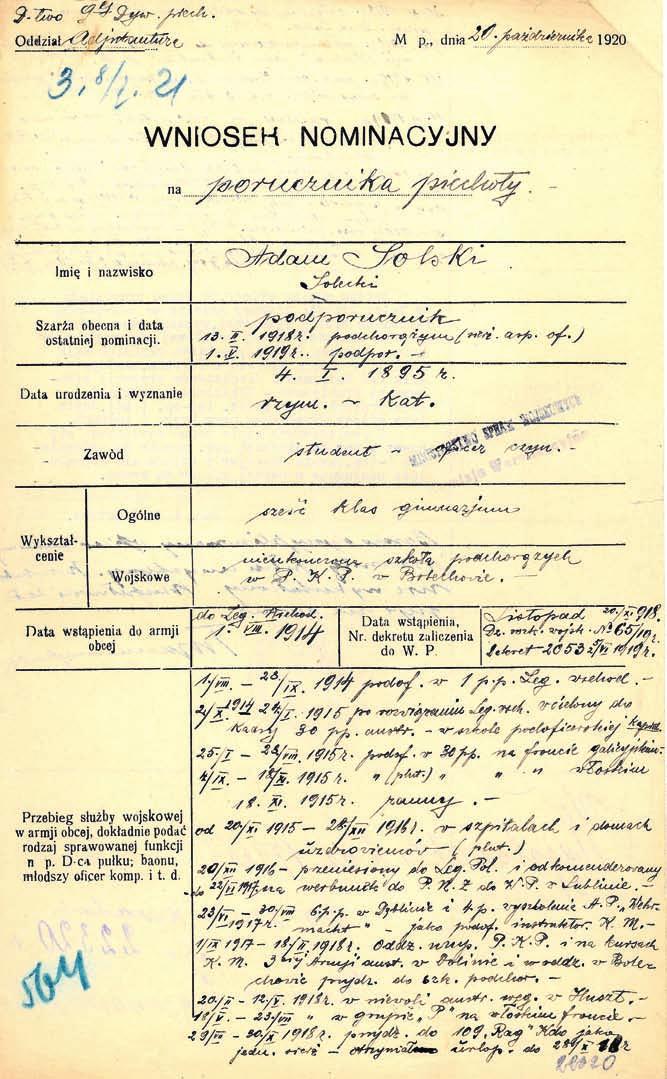 D-two 9 Dyw. piech.
Oddział Adjutantura M p., dnia 20. października 1920
3. 8/I. 21
WNIOSEK NOMINACYJNY
na porucznika piechoty. -
Imię i nazwisko
Adam Solski
Solecki
Szarża obecna i data
ostatniej nominacji.
podporucznik
13. II. 1918r. podchorążym (rez. asp. of.)
1. V. 1919r. podpor. -
Data urodzenia i wyznanie
4. I. 1895 r.
rzym. - kat.
Zawód
student - czyn. -
MINISTERSTWO SPRAW WOJSKOWYCH
Wykształ-
cenie
Ogólne
sześć klas gimnazjum
Wojskowe
nieukończona szkoła podchorążych
w P. K. P. w Bolechowie. -
Data wstąpienia do armji
obcej
do Leg. Wschod.
1. VIII. 1914
Data wstąpienia,
Nr. dekretu zaliczenia
do W. P.
Listopad 20./XI 918.
Dz. rozk. wojsk. No 65/19r.
Dekret 2053 1919r.
Przebieg służby wojskowej
w armji obcej, dokładnie podać
rodzaj sprawowanej funkcji
n p. D-ca pułku; baonu,
młodszy oficer komp. i t. d.
1/VIII. - 23/IX. 1914 podof. w 1 p.p. Leg. wschod. -
2/X 1914 - 24/I. 1915 po rozwiązaniu Leg. wsch. wcielony do
Kadry 30 pp. austr. - w szkole podoficerskiej
25/I - 23/VIII. 1915r. podof. w 30 pp. na froncie galicyjskim
4/IX. - 18/XI. 1915r. " (plut.) " " " włoskim
18. XI. 1915r. ranny. -
od 20/XI 1915 - 28/XII 1916r. w szpitalach i domach
uzdrowieńców (plut.)
29/XII 1916 - przeniesiony do Leg. Pol. i odkomenderowany
do 22/VI 1917 na werbunek do P. N. Z do W. P. w Lublinie. -
23/VI - 30/VIII 1917r. 6. p. p. w Dęblinie i 4. p. wyszkolenie A. P. „Wehr-
macht" - jako podof. instruktor. K. M. -
1/IX 1917 - 18/II 1918r. Oddz. uzup. P. K. P. i na kursach
K. M. 3ciej Armji aust. w Dolinie i w oddz. w Bole-
chowie przydz. do szk. podchor. -
20/II - 12/V. 1918r. w niewoli austr. węg. w Huszt. -
18/V. - 23/VII " w grupie „P" na włoskim froncie. -
29/VII - 30/X 1918r. przydz. do 109 „Rag" Kdo jako
jedn. - otrzymał urlop. do 28/X 18r
564
22320